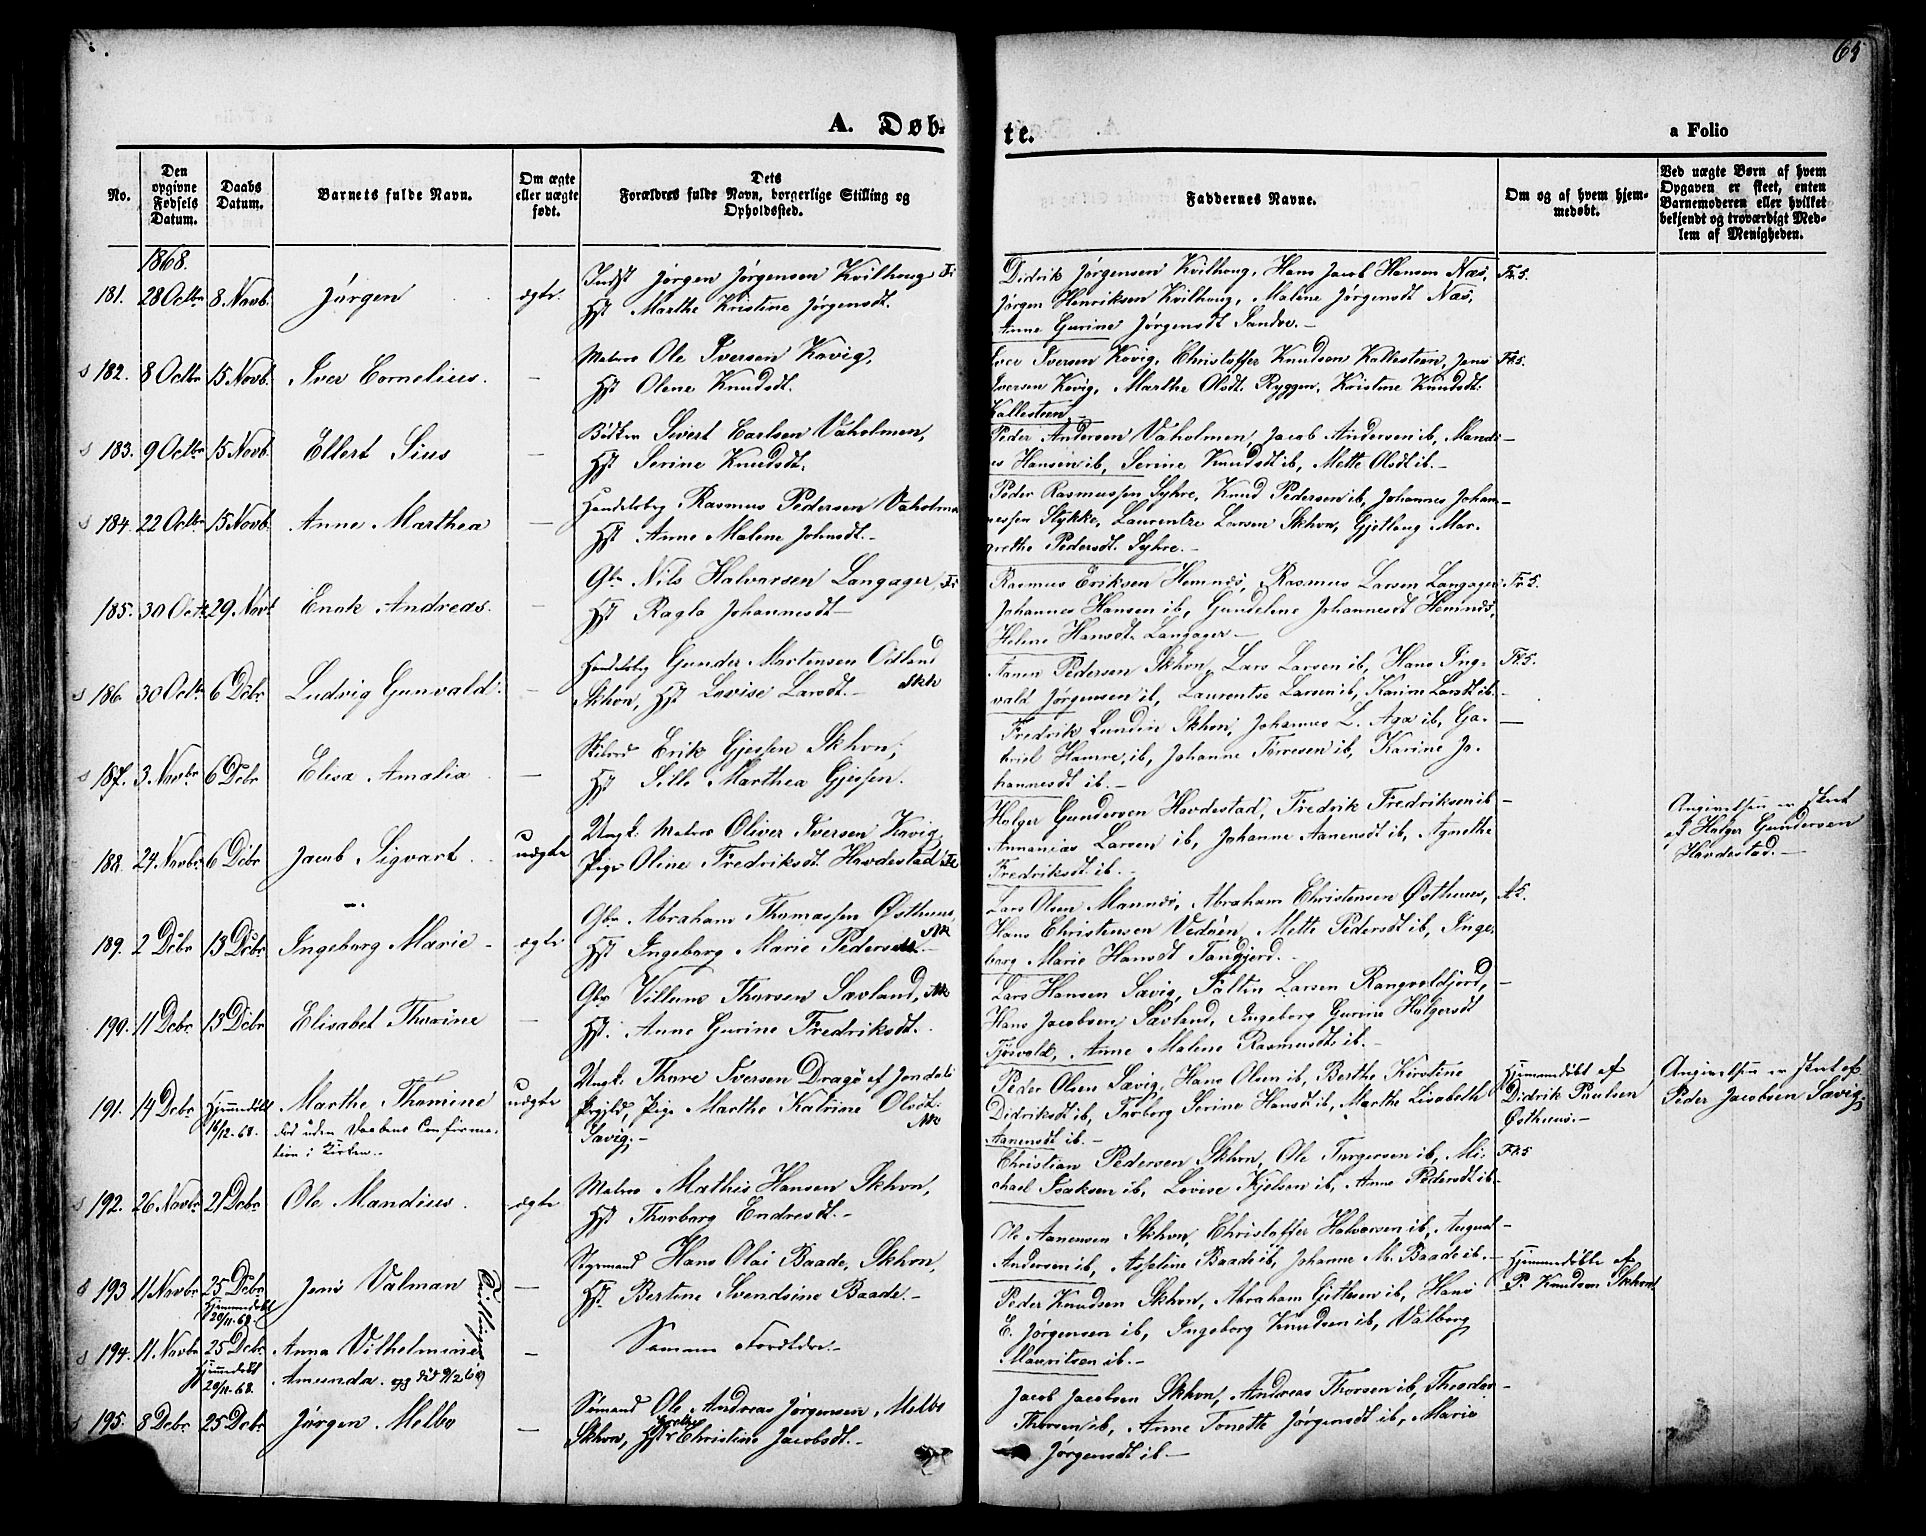 65
A. Døb- te.
a Folio
No.
Den opgivne Fødsels Datum.
Daabs Datum.
Barnets fulde Navn.
Om ægte eller uægte født.
Dets Forældres fulde Navn, borgerlige Stilling og Opholdssted.
Faddernes Navne.
Om og af hvem hjem-
medøbt.
Ved uægte Børn af hvem
Opgaven er skeet, enten
Barnemoderen eller hvilket
bekjendt og troværdigt Med-
lem af Menigheden.
1868.
181. 28 Octbr 8. Novb. Jørgen ægte. Indst Jørgen Jørgensen Kvilhaug
Hst Marthe Kristine Jørgensdt.
Didrik Jørgensen Kvilhaug, Hans Jacob Hansen Næs,
Jørgen Henriksen Kvilhaug, Malene Jørgensdt Næs,
Anne Gurine Jørgensdt Sandve.-
182. 8 Octbr 15 Novb. Iver Cornelius. - Matros Ole Iversen Kavig,
Hst Olene Knudsdt.
Iver Iversen Kavig, Christoffer Knudsen Kallesteen, Jens
Iversen Kavig, Marthe Olsdt. Ryggen, Kristine Knudsdt:
Kallesteen
183. 9 Octbr 15 Novb. Ellert Sius - Bødker Sivert Carlsen Vaholmen,
Hst Serine Knudsdt.
Peder Andersen Vaholmen, Jacob Andersen ib, Mandi-
us Hansen ib, Serine Knudsdt ib, Mette Olsdt ib.-
184. 22 Octbr 15 Novb. Anne Marthea - Handelsbg Rasmus Pedersen Vaholmen
Hst Anne Malene Johnsdt.-
Peder Rasmussen Syhre, Knud Pedersen ib, Johannes Johan-
nessen Stykke, Laurentze Larsen Skhvn, Gjetlaug Mar-
grethe Pedersdt. Syhre.-
185. 30 Octb 29 Novb Enok Andreas. - Gbr Nils Halvorsen Langager,
Hst Ragla Johannesdt-
Rasmus Eriksen Hemnæs, Rasmus Larsen Langager
Johannes Hansen ib, Gundeline Johannesdt Hemnæs,
Helene Hansdt. Langager-
186. 30 Octbr 6 Dcbr Ludvig Gunvald. - Handelsbg Gunder Martensen Odland
Skhvn, Hst Lovise Larsdt.- Skh
Aanen Pedersen Skhvn, Lars Larsen ib, Hans Ing-
vald Jørgensen ib, Laurentse Larsen ib, Karine Larsdt ib.
187. 3. Novbr 6 Dcbr Elisa Amalia - Erik Gjessen Skhvn,
Hst Sille Marthea Gjessen.
Fredrik Lundin Skhvn, Johannes L. Aga ib, Ga-
briel Hamre, ib, Johanne Torresen ib, Karine Jo-
hannesdt ib.-
188. 24. Novbr 6 Dcbr Jacob Sigvart. uægte Ungk. Matros Oliver Iversen Kavig,
Pige Oline Fredriksdt. Havdestad
Holger Gundersen Havdestad, Fredrik Fredriksen ib
Annanias Larsen ib, Johanne Aanensdt ib, Agnethe
Fredriksdt ib.-
Angivelsen er skeet
af Holger Gundersen
Havdestad.-
189. 2 Dcbr 13 Dcbr. Ingeborg Marie - ægte Gbr Abraham Thomassen Østhuus,
Hst Ingeborg Marie Pedersdt.-
Lars Olsen Mannæs, Abraham Christensen Østhuus,
Hans Christensen Vedøen, Mette Pedersdt ib, Inge-
borg Marie Hansdt Tangjerd.-
190. 11 Dcbr 13 Dcbr Elisabet Thorine - Gbr Villum Thorsen Sævland,
Hst. Anne Gurine Fredriksdt.
Lars Hansen Sævig, Falten Larsen Rangvaldjord,
Hans Jacobsen Sævland, Ingeborg Gurine Holgersdt
Tjøsvold, Anne Malene Rasmusdt ib.-
191. 14 Dcbr Hjemmedøbt 16/12.68. Marthe Thomine uægte
død uden Daabens Confirma-
tion i Kirken.
Ungk. Thore Iversen Dragø af Jondals
Prgjld, Pige Marthe Katrine Olsdt.
Sævig.-
Peder Olsen Sævig, Hans Olsen ib, Berthe Kirstine
Didriksdt ib, Torborg Serine Hansdt ib, Marthe Lisabeth
Aanensdt ib.-
Hjemmedøbt af
Didrik Paulsen
Østhuus.-
Angivelsen er skeet af
Peder Jacobsen Sævig.
192. 26 Novbr 21 Dcbr. Ole Mandius. ægte Matros Mathis Hansen Skhvn,
Hst Thorborg Endresdt.-
Christian Pedersen Skhvn, Ole Torgersen ib, Mi-
chael Isaksen ib, Lovise Kjelsen ib, Anne Pedersdt ib.
193 11 Novbr 25 Dcbr Hjemmedøbt 20/11.68. Jens Valman Tvillinger - Styrmand Hans Olai Baade, Skhvn,
Hst. Bertine Svendsine Baade.-
Ole Aanensen Skhvn, Christoffer Halvorsen ib, August
Andersen ib, Asseline Baade ib, Johanne M. Baade ib.-
Hjemmedøbte af
P. Knudsen Skhvn
194. 11 Novbr 25 Dcbr Hjemmedøbt 20/11.68. Anna Vilhelmine
Amunda. død 9/2 69 - Samme Forældre.-
Peder Knudsen Skhvn, Abraham Gittesen ib, Hans
E. Jørgensen ib, Ingeborg Knudsen ib, Valborg
Mauritsen ib.-
195. 8 Dcbr. 25 Dcbr. Jørgen Melbo - Sømand Ole Andreas Jørgensen Melbo
Skhvn, Hst Christine Jacobsdt.-
Jacob Jacobsen Skhvn, Andreas Thorsen ib, Theodor
Thorsen ib, Anne Tonette Jørgensdt ib, Marie
Jørgensdt ib-